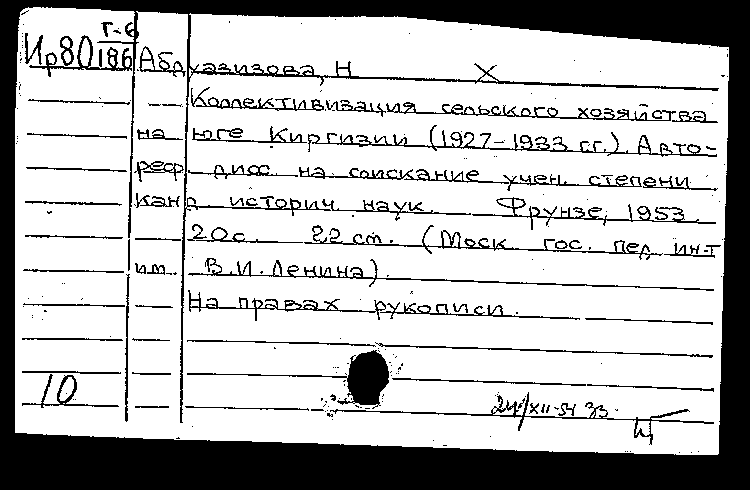 Г-6
Ир80 186 Абдуазизова, Н Х
Коллективизация сельского хозяйства
на юге Киргизии (1927-1933 гг.). Авто=
реф. дисс. на соискание учен. степени
канд историч. наук. Фрунзе, 1953.
20с. 22 ст. (Моск. гос. пед. ин-т
им. В.И. Ленина).
На правах рукописи.
10
24/XII-54